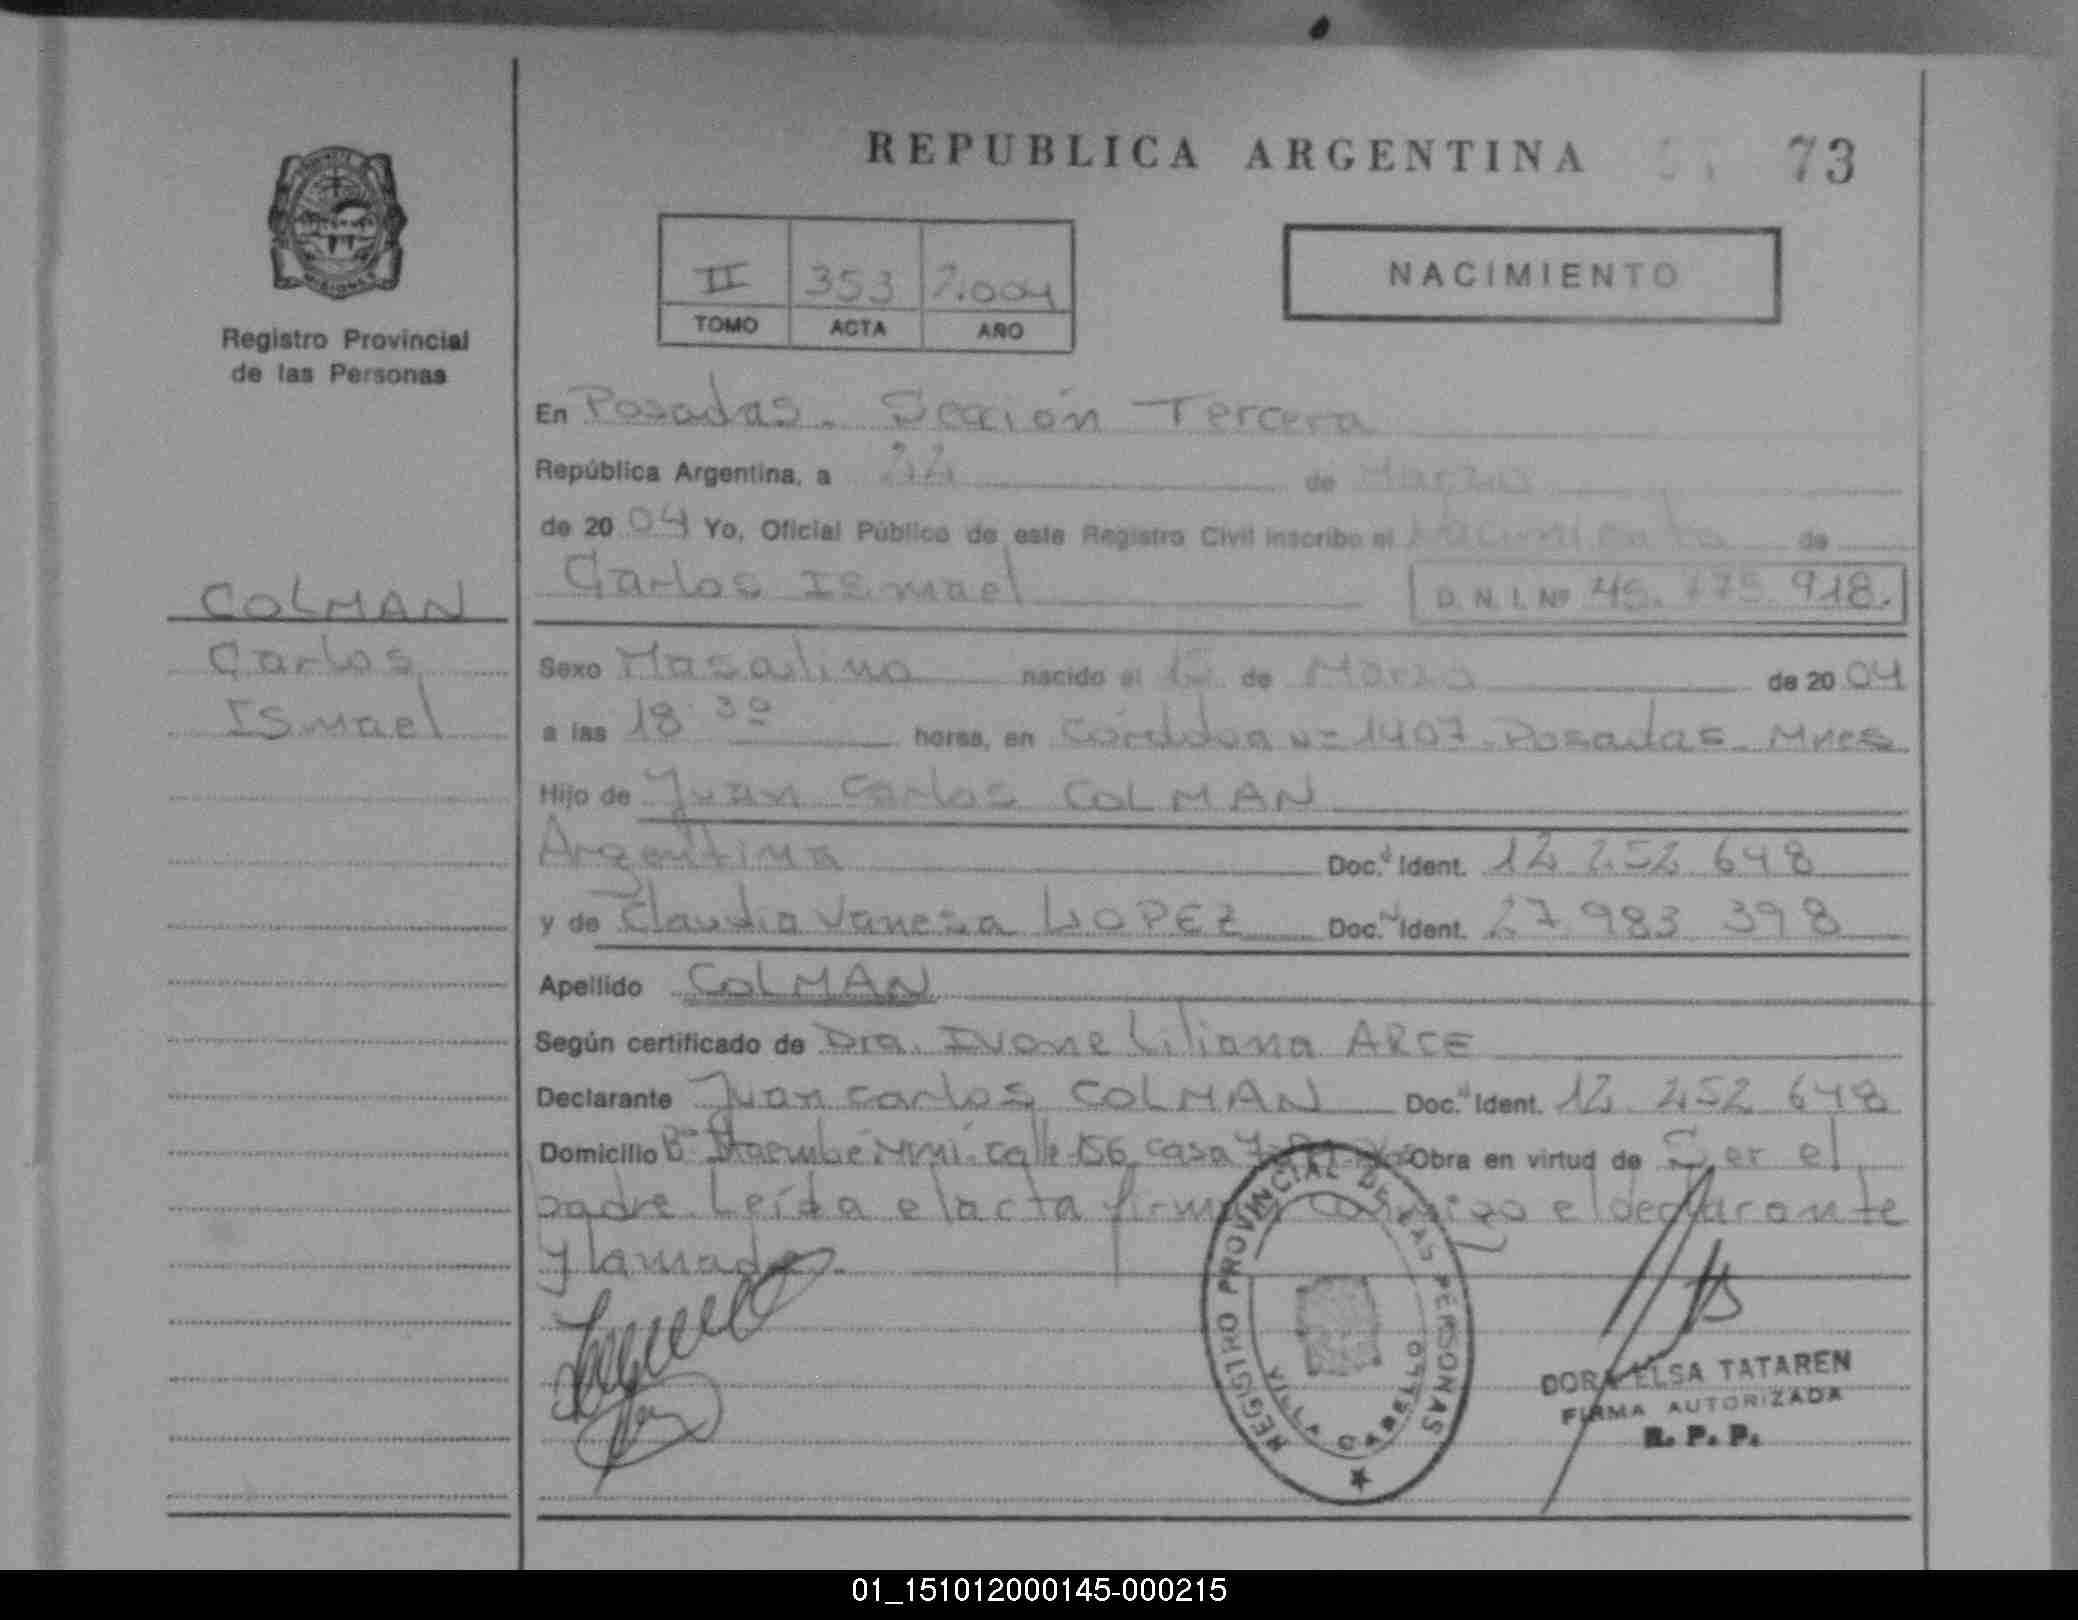 REPUBLICA ARGENTINA 73
II 353 2.004
TOMO ACTA AÑO
NACIMIENTO
Registro Provincial
de las Personas
En Posadas. Sección Tercera
República Argentina, a 22 de Marzo
de 20 04 Yo, Oficial Público de este Registro Civil inscribo el Nacimiento de
Carlos Ismael D. N. I. Nº 45. 775 918.
COLMAN
Carlos
Ismael
Sexo Masculino nacido el de Marzo de 20 04
a las 18 30 horas, en Córdoba Nº 1407. Posadas. Mnes
Hijo de Juan Carlos COLMAN
Argentina Doc. Ident. 12 252 648
y de Claudia Vanesa LOPEZ Doc. Ident. 27 983 398
Apellido COLMAN
Según certificado de Dra. Ivone Liliana ARCE
Declarante Juan Carlos COLMAN Doc. Ident. 12 252 648
Domicilio Bº calle 156 casa Obra en virtud de Ser el
padre. Leída el acta firma conmigo el declarante
y la madre.
REGISTRO PROVINCIAL DE LAS PERSONAS
VILLA CABELLO
DORA ELSA TATAREN
FIRMA AUTORIZADA
R. P. P.
01_151012000145-000215